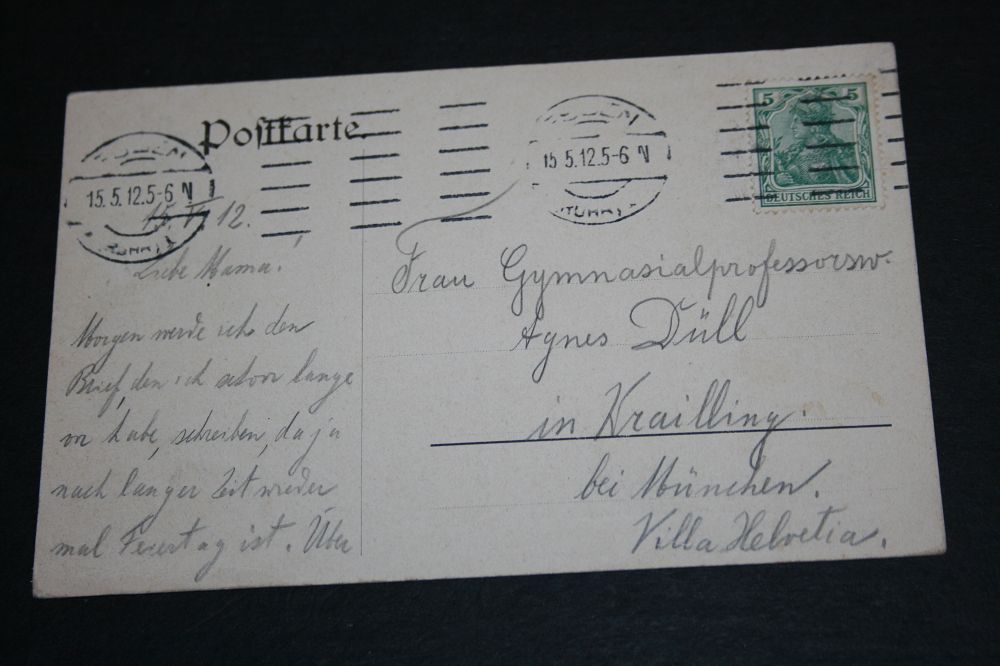 Postkarte.
15.5.12.5-6 N
(RUHR)
15.5.12.5-6 N
(RUHR)
5 5
DEUTSCHES REICH
15. V. 12.
Liebe Mama.
Morgen werde ich den
Brief, den ich schon lange
vor habe, schreiben, da ja
nach langer Zeit wieder
mal Feiertag ist. Über
Frau Gymnasialprofessorsw.
Agnes Düll
in Krailling.
bei München.
Villa Helvetia.